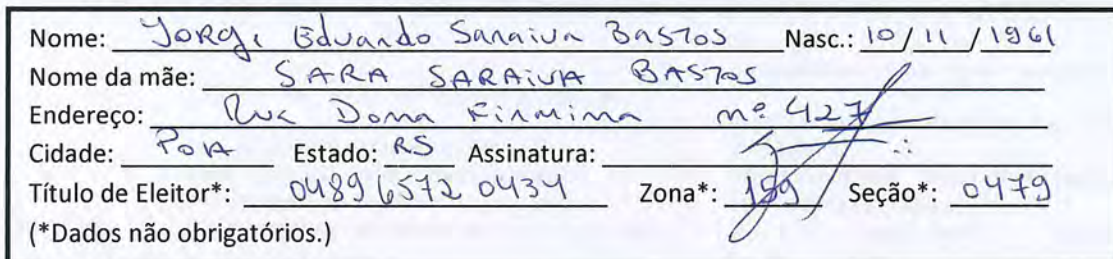 Nome: Jorge Eduardo Saraiva Bastos Nasc.: 10/11/1961
Nome da mãe: SARA SARAIVA BASTOS
Endereço: Rua Dona Firmina nº 427
Cidade: POA Estado: RS Assinatura:
Título de Eleitor*: 04896572 0434 Zona*: 159 Seção*: 0479
(*Dados não obrigatórios.)